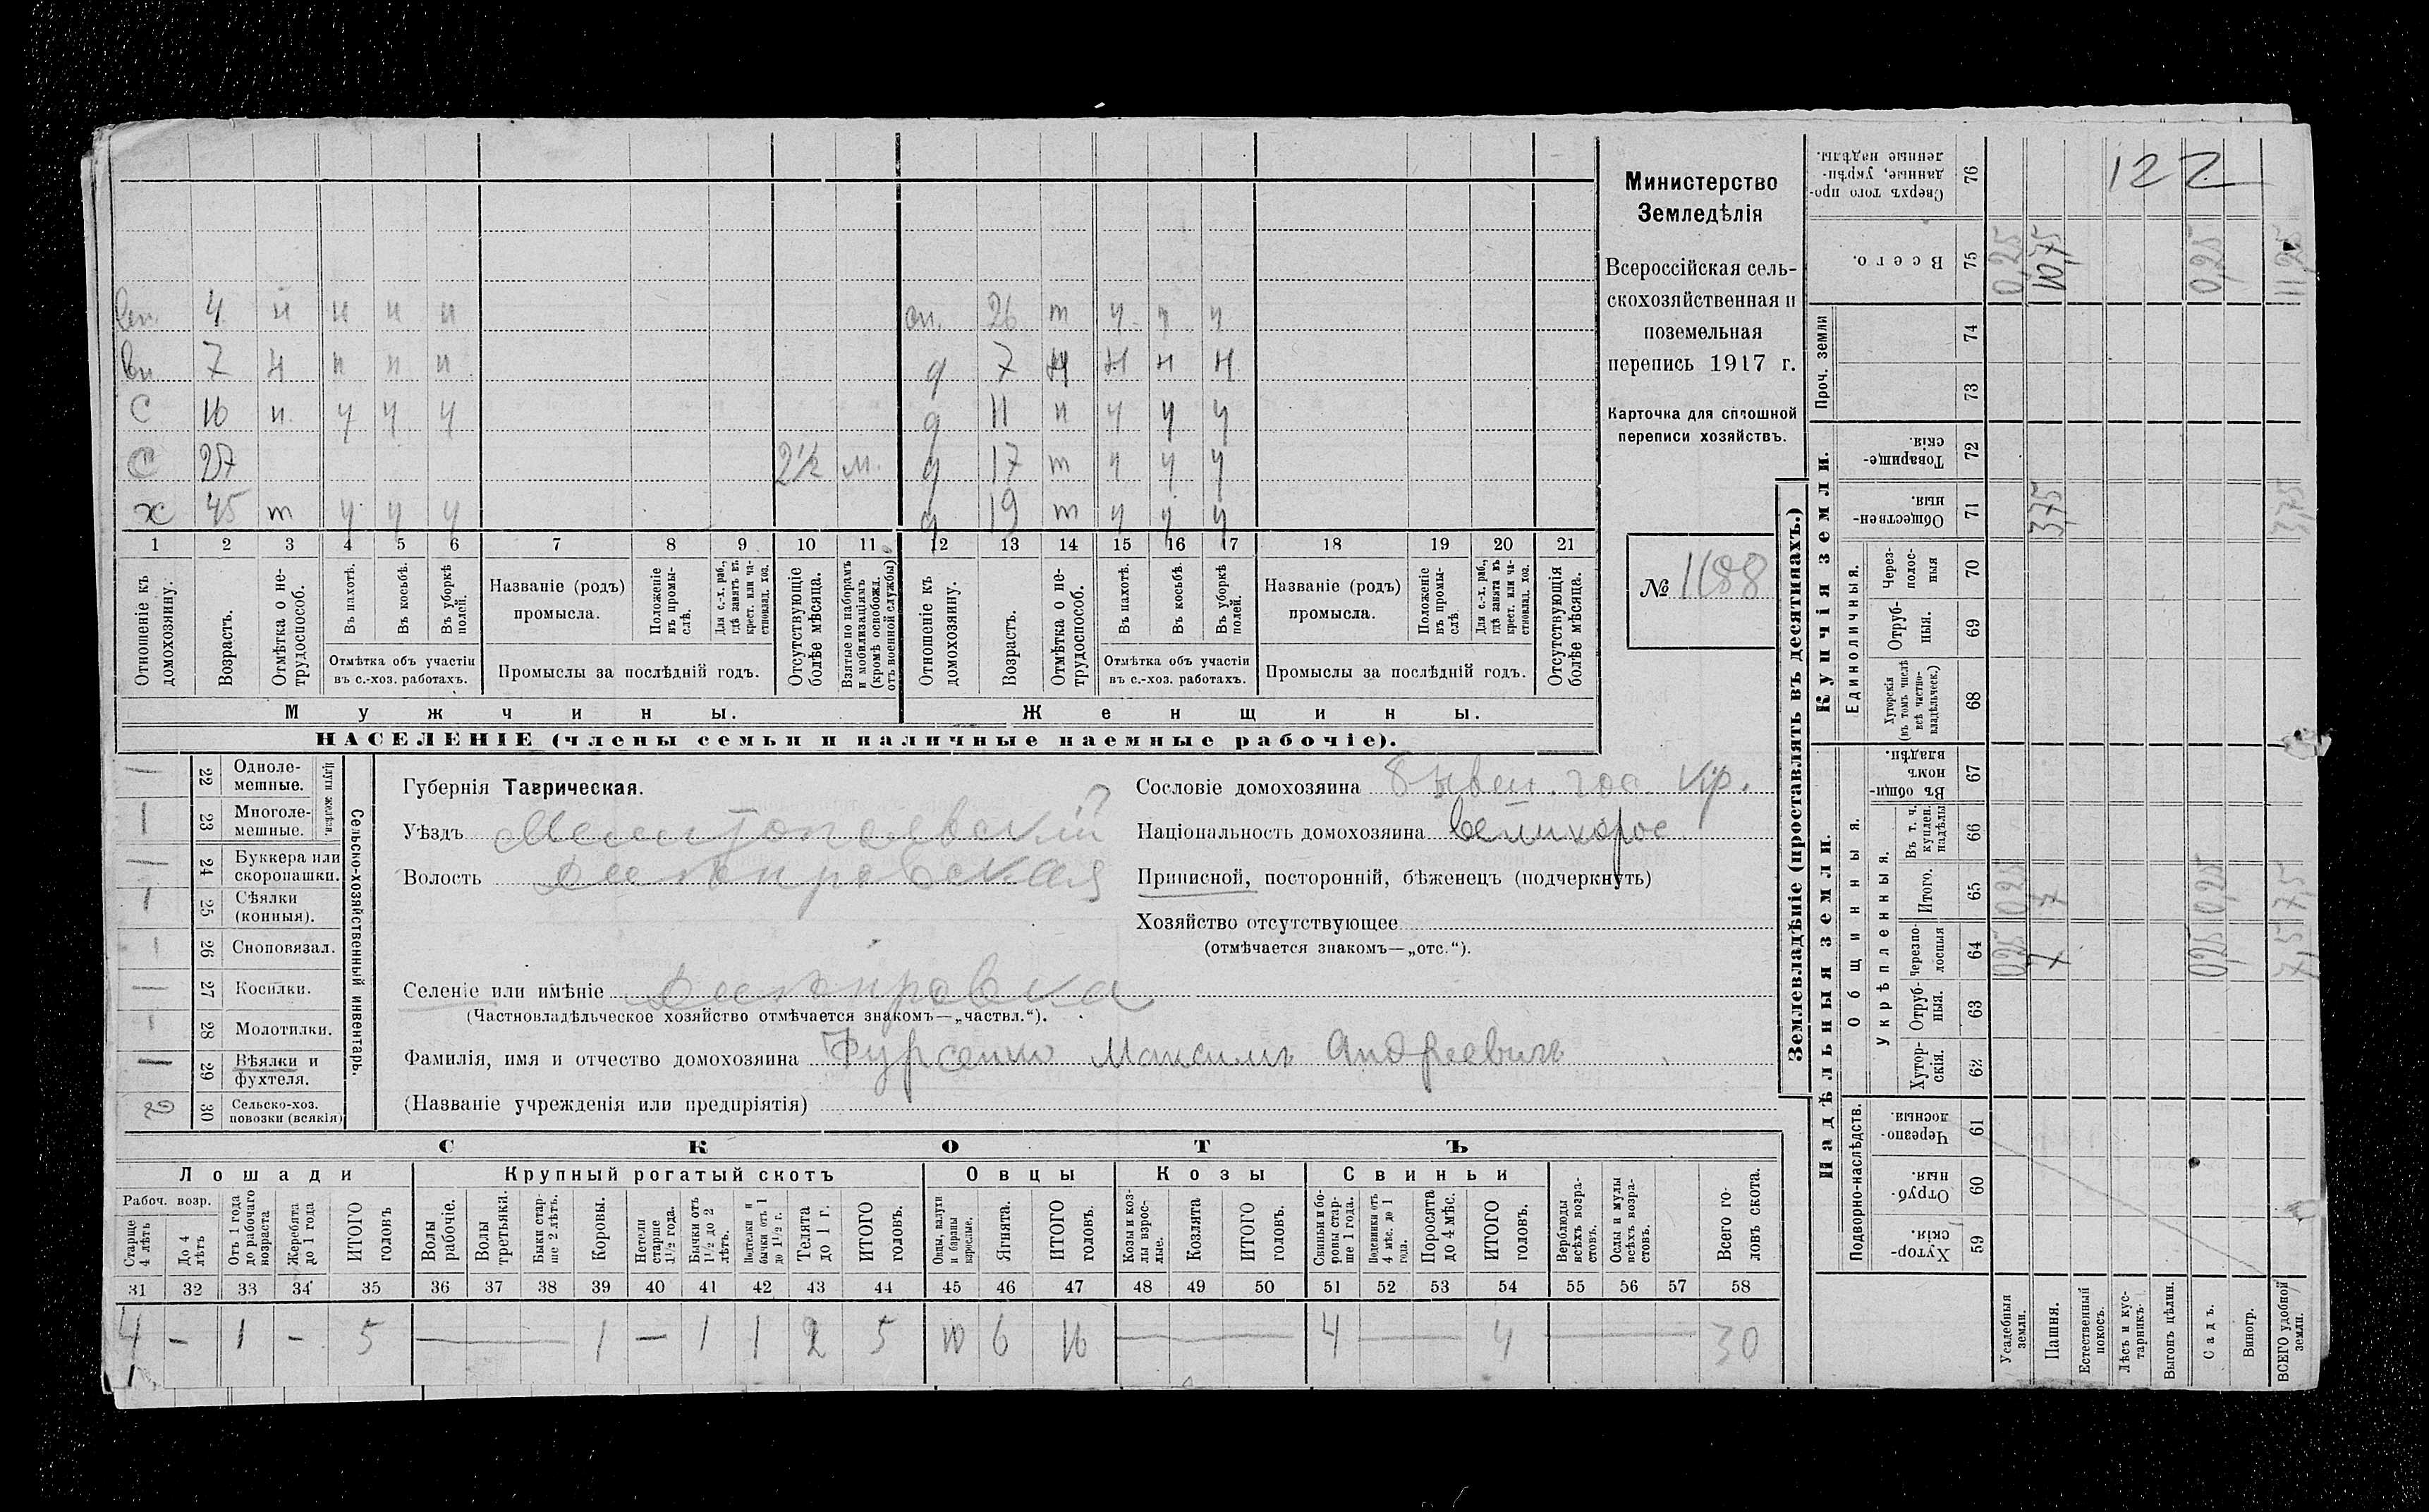 вн. 4 н н н н
вн 7 н н н н
С 16 н. ч ч ч
С 27 2½ м.
х 45 т ч ч ч
сн. 26 т ч ч ч
д 7 н н н н
д 11 н ч ч ч
д 17 т ч ч ч
д 19 т ч ч ч
1 2 3 4 5 6 7 8 9 10 11 12 13 14 15 16 17 18 19 20 21
Отношеніе къ домохозяину.
Возрастъ.
Отмѣтка о нетрудоспособ.
Въ пахотѣ.
Въ косьбѣ.
Въ уборкѣ полей.
Отмѣтка объ участіи
въ с.-хоз. работахъ.
Названіе (родъ)
промысла.
Положеніе въ промыслѣ.
Для с.-х. раб., гдѣ занятъ въ крест. или частновлад. хоз.
Промыслы за послѣдній годъ.
Отсутствующіе болѣе мѣсяца.
Взятые по наборамъ и мобилизаціямъ (кромѣ освобожд. отъ военной службы)
Отношеніе къ домохозяину.
Возрастъ.
Отмѣтка о нетрудоспособ.
Въ пахотѣ.
Въ косьбѣ.
Въ уборкѣ полей.
Отмѣтка объ участіи
въ с.-хоз. работахъ.
Названіе (родъ)
промысла.
Положеніе въ промыслѣ.
Для с.-х. раб., гдѣ занятъ въ крест. или частновлад. хоз.
Промыслы за послѣдній годъ.
Отсутствующія болѣе мѣсяца.
Мужчины.
Женщины.
НАСЕЛЕНІЕ (члены семьи и наличные наемные рабочіе).
Министерство
Земледѣлія
Всероссійская сель-
скохозяйственная и
поземельная
перепись 1917 г.
Карточка для сплошной
переписи хозяйствъ.
№ 1188
— 22 Одноле-
мешные.
1 23 Многоле-
мешные.
Плуги желѣзн.
— 24 Буккера или
скоропашки.
1 25 Сѣялки
(конныя).
1 26 Сноповязал.
— 27 Косилки.
1 28 Молотилки.
— 29 Вѣялки и
фухтеля.
2 30 Сельско-хоз.
повозки (всякія)
Сельско-хозяйственный инвентарь.
Губернія Таврическая.
Уѣздъ Мелитопольскій
Волость
Селеніе или имѣніе
(Частновладѣльческое хозяйство отмѣчается знакомъ—„частвл.“).
Фамилія, имя и отчество домохозяина Фурсенко Максимъ Андреевичъ
(Названіе учрежденія или предпріятія)
Сословіе домохозяина бывш. гос. кр.
Національность домохозяина великорос
Приписной, посторонній, бѣженецъ (подчеркнуть)
Хозяйство отсутствующее
(отмѣчается знакомъ—„отс.“).
СКОТЪ
Лошади Крупный рогатый скотъ Овцы Козы Свиньи
Рабоч. возр.
Старше 4 лѣтъ
До 4 лѣтъ
Отъ 1 года до рабочаго возраста
Жеребята до 1 года
ИТОГО головъ
Волы рабочіе.
Волы третьяки.
Быки старше 2 лѣтъ.
Коровы.
Нетели старше 1½ года.
Бычки отъ 1½ до 2 лѣтъ.
Подтелки и бычки отъ 1 до 1½ г.
Телята до 1 г.
ИТОГО головъ.
Овцы, валухи и бараны взрослые.
Ягнята.
ИТОГО головъ.
Козы и козлы взрослые.
Козлята
ИТОГО головъ.
Свиньи и боровы старше 1 года.
Подсвинки отъ 4 мѣс. до 1 года.
Поросята до 4 мѣс.
ИТОГО головъ.
Верблюды всѣхъ возрастовъ.
Ослы и мулы всѣхъ возрастовъ.
Всего головъ скота.
31 32 33 34 35 36 37 38 39 40 41 42 43 44 45 46 47 48 49 50 51 52 53 54 55 56 57 58
4 — 1 — 5 — 1 — 1 1 2 5 10 6 16 — 4 — 4 — 30
1
Землевладѣніе (проставлять въ десятинахъ.)
Надѣльныя земли.
Купчія земли.
Проч. земли
Подворно-наслѣдств.
Общинныя.
Укрѣпленныя.
Единоличныя.
Сверхъ того проданные, укрѣпленные надѣлы. 76 122
Всего. 75 0,25 10,75 0,25 11,25
74
73
Товарищескія. 72
Общественныя. 71 3,75 3,75
Черезполосныя 70
Отрубныя. 69
Хуторскія (въ томъ числѣ всѣ частновладѣльческ.) 68
Въ общинномъ владѣн. 67
Въ т. ч. куплен. надѣлы 66
Итого. 65 0,25 7 0,25 7,5
Черезполосныя 64 0,25 7 0,25 7,5
Отрубныя. 63
Хуторскія. 62
Черезполосныя 61
Отрубныя. 60
Хуторскія. 59
Усадебныя земли.
Пашня.
Естественный покосъ.
Лѣсъ и кустарникъ.
Выгонъ цѣлин.
Садъ.
Виногр.
ВСЕГО удобной земли.